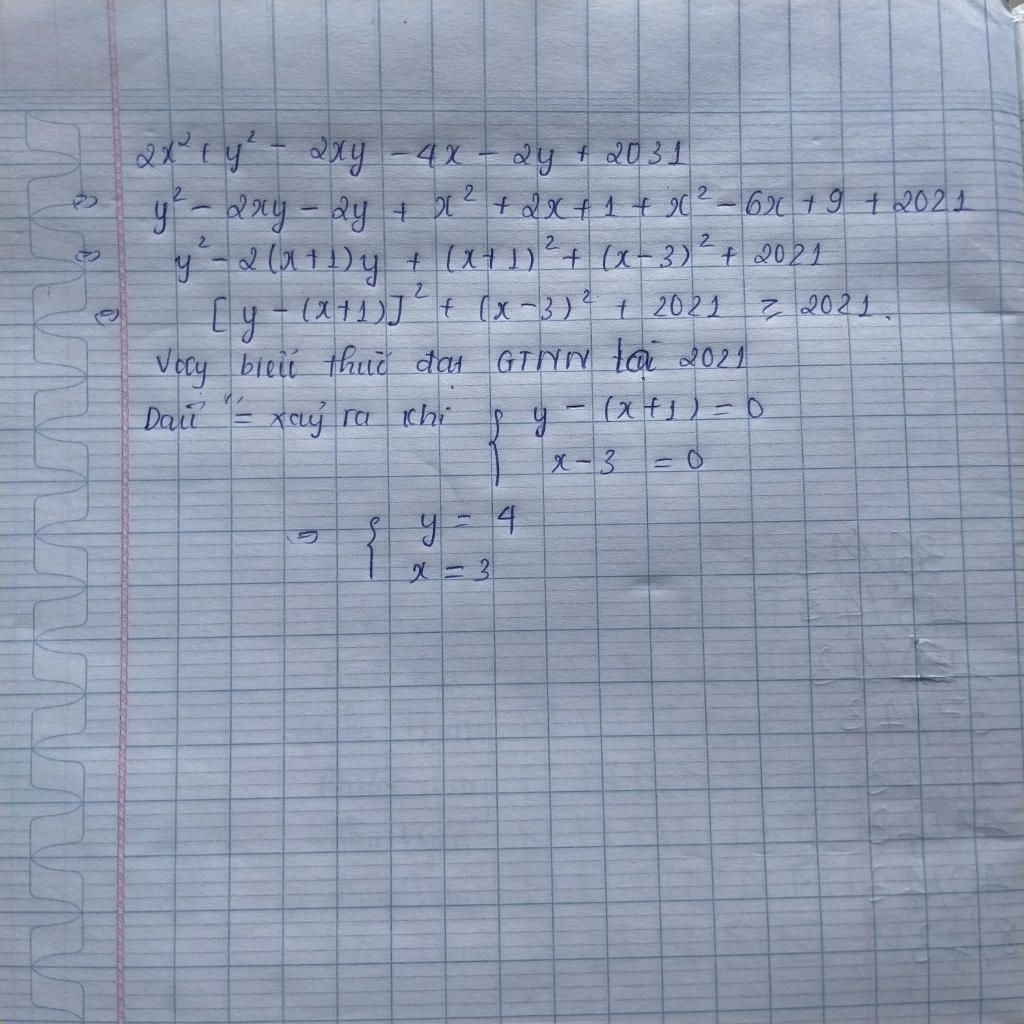 2x² + y² - 2xy - 4x - 2y + 2031
⇔ y² - 2xy - 2y + x² + 2x + 1 + x² - 6x + 9 + 2021
⇔ y² - 2(x+1)y + (x+1)² + (x-3)² + 2021
⇔ [y - (x+1)]² + (x-3)² + 2021 ≥ 2021.
Vậy biểu thức đạt GTNN tại 2021
Dấu "=" xảy ra khi { y - (x+1) = 0
x - 3 = 0
⇒ { y = 4
x = 3